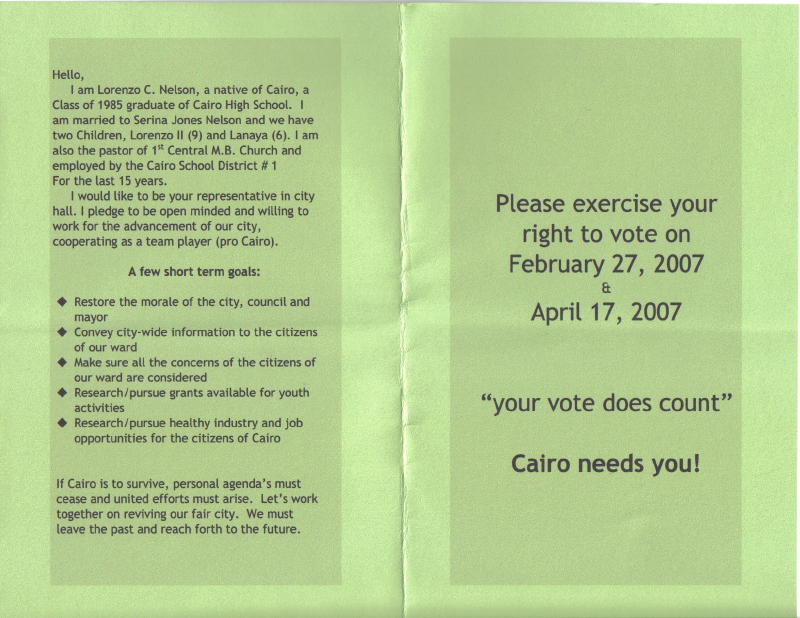 Hello,
I am Lorenzo C. Nelson, a native of Cairo, a
Class of 1985 graduate of Cairo High School.  I
am married to Serina Jones Nelson and we have
two Children, Lorenzo II (9) and Lanaya (6). I am
also the pastor of 1st Central M.B. Church and
employed by the Cairo School District # 1
For the last 15 years.
I would like to be your representative in city
hall. I pledge to be open minded and willing to
work for the advancement of our city,
cooperating as a team player (pro Cairo).
A few short term goals:
◆ Restore the morale of the city, council and
mayor
◆ Convey city-wide information to the citizens
of our ward
◆ Make sure all the concerns of the citizens of
our ward are considered
◆ Research/pursue grants available for youth
activities
◆ Research/pursue healthy industry and job
opportunities for the citizens of Cairo
If Cairo is to survive, personal agenda’s must
cease and united efforts must arise.  Let’s work
together on reviving our fair city.  We must
leave the past and reach forth to the future.
Please exercise your
right to vote on
February 27, 2007
&
April 17, 2007
“your vote does count”
Cairo needs you!